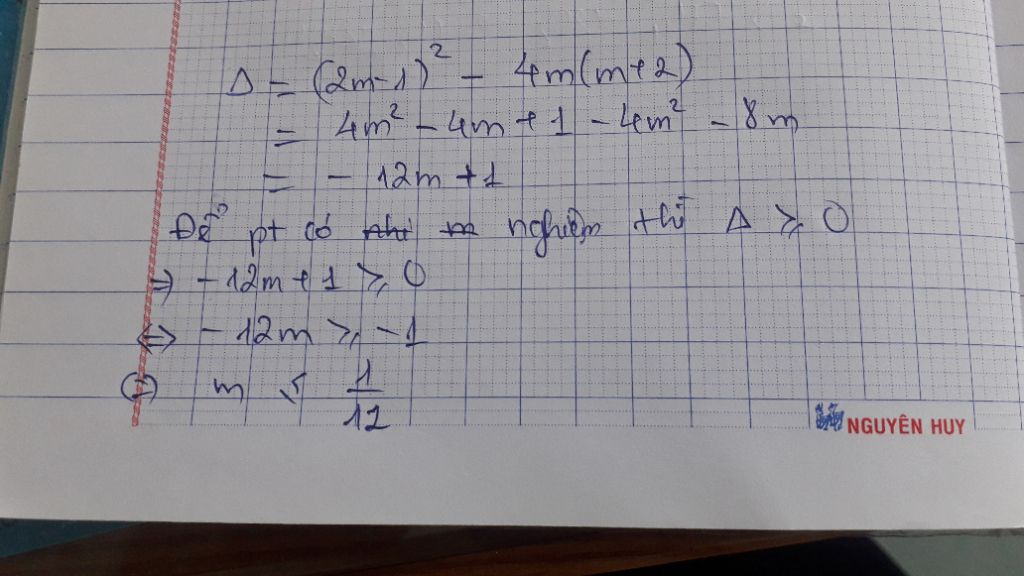 Δ = (2m-1)² - 4m(m+2)
= 4m² - 4m + 1 - 4m² - 8m
= - 12m + 1
Để pt có nhi m nghiệm thì Δ ⩾ 0
⇒ - 12m + 1 ⩾ 0
⇔ - 12m ⩾ - 1
⇔ m ⩽ 1/12
NGUYÊN HUY